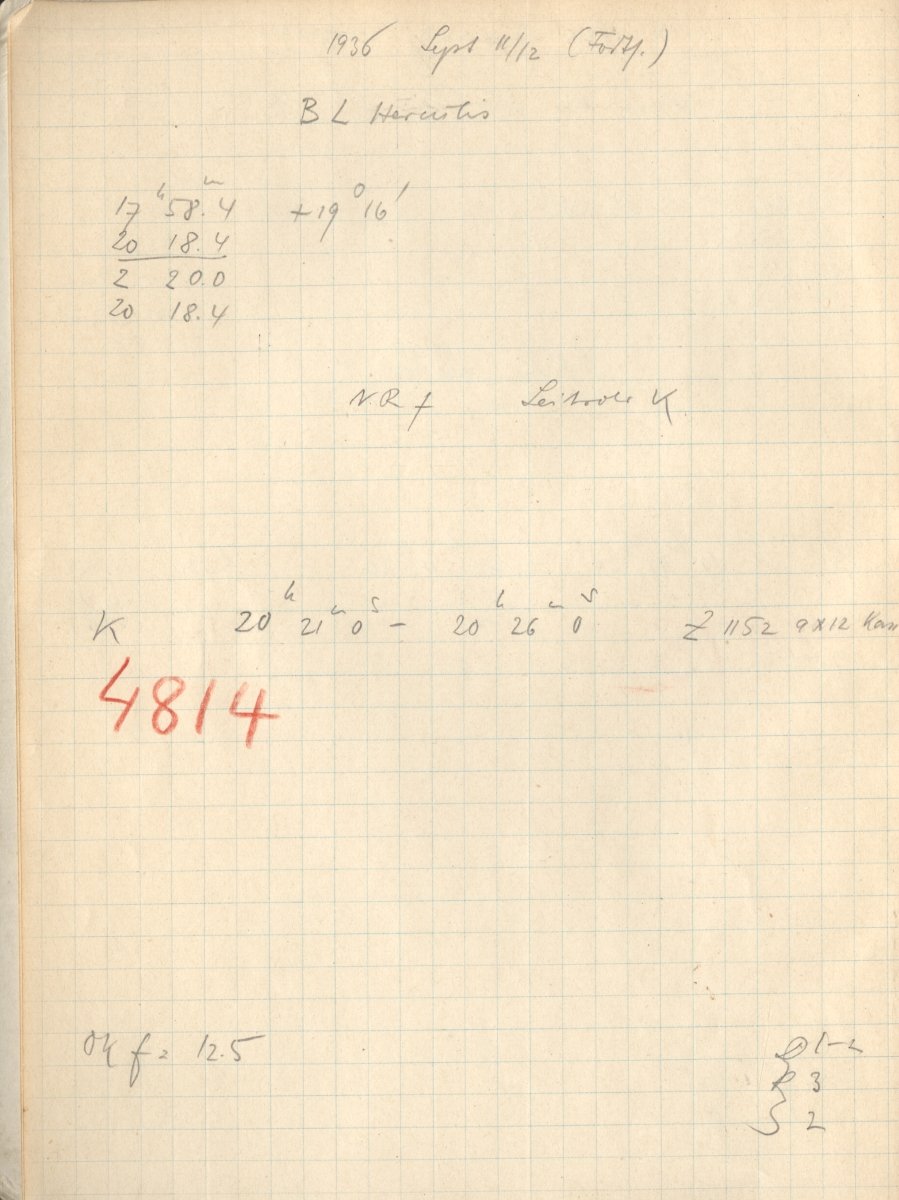 1936 Sept 11/12 (Forts.)
BL Herculis
17ʰ 58.ᵐ4 +19° 16'
20 18.4
2 20.0
20 18.4
N.R f Leitrohr K
K 20ʰ 21ᵐ 0ˢ – 20ʰ 26ᵐ 0ˢ Z 1152 9x12 Kass
4814
OK f = 12.5
1-2
3
S 2